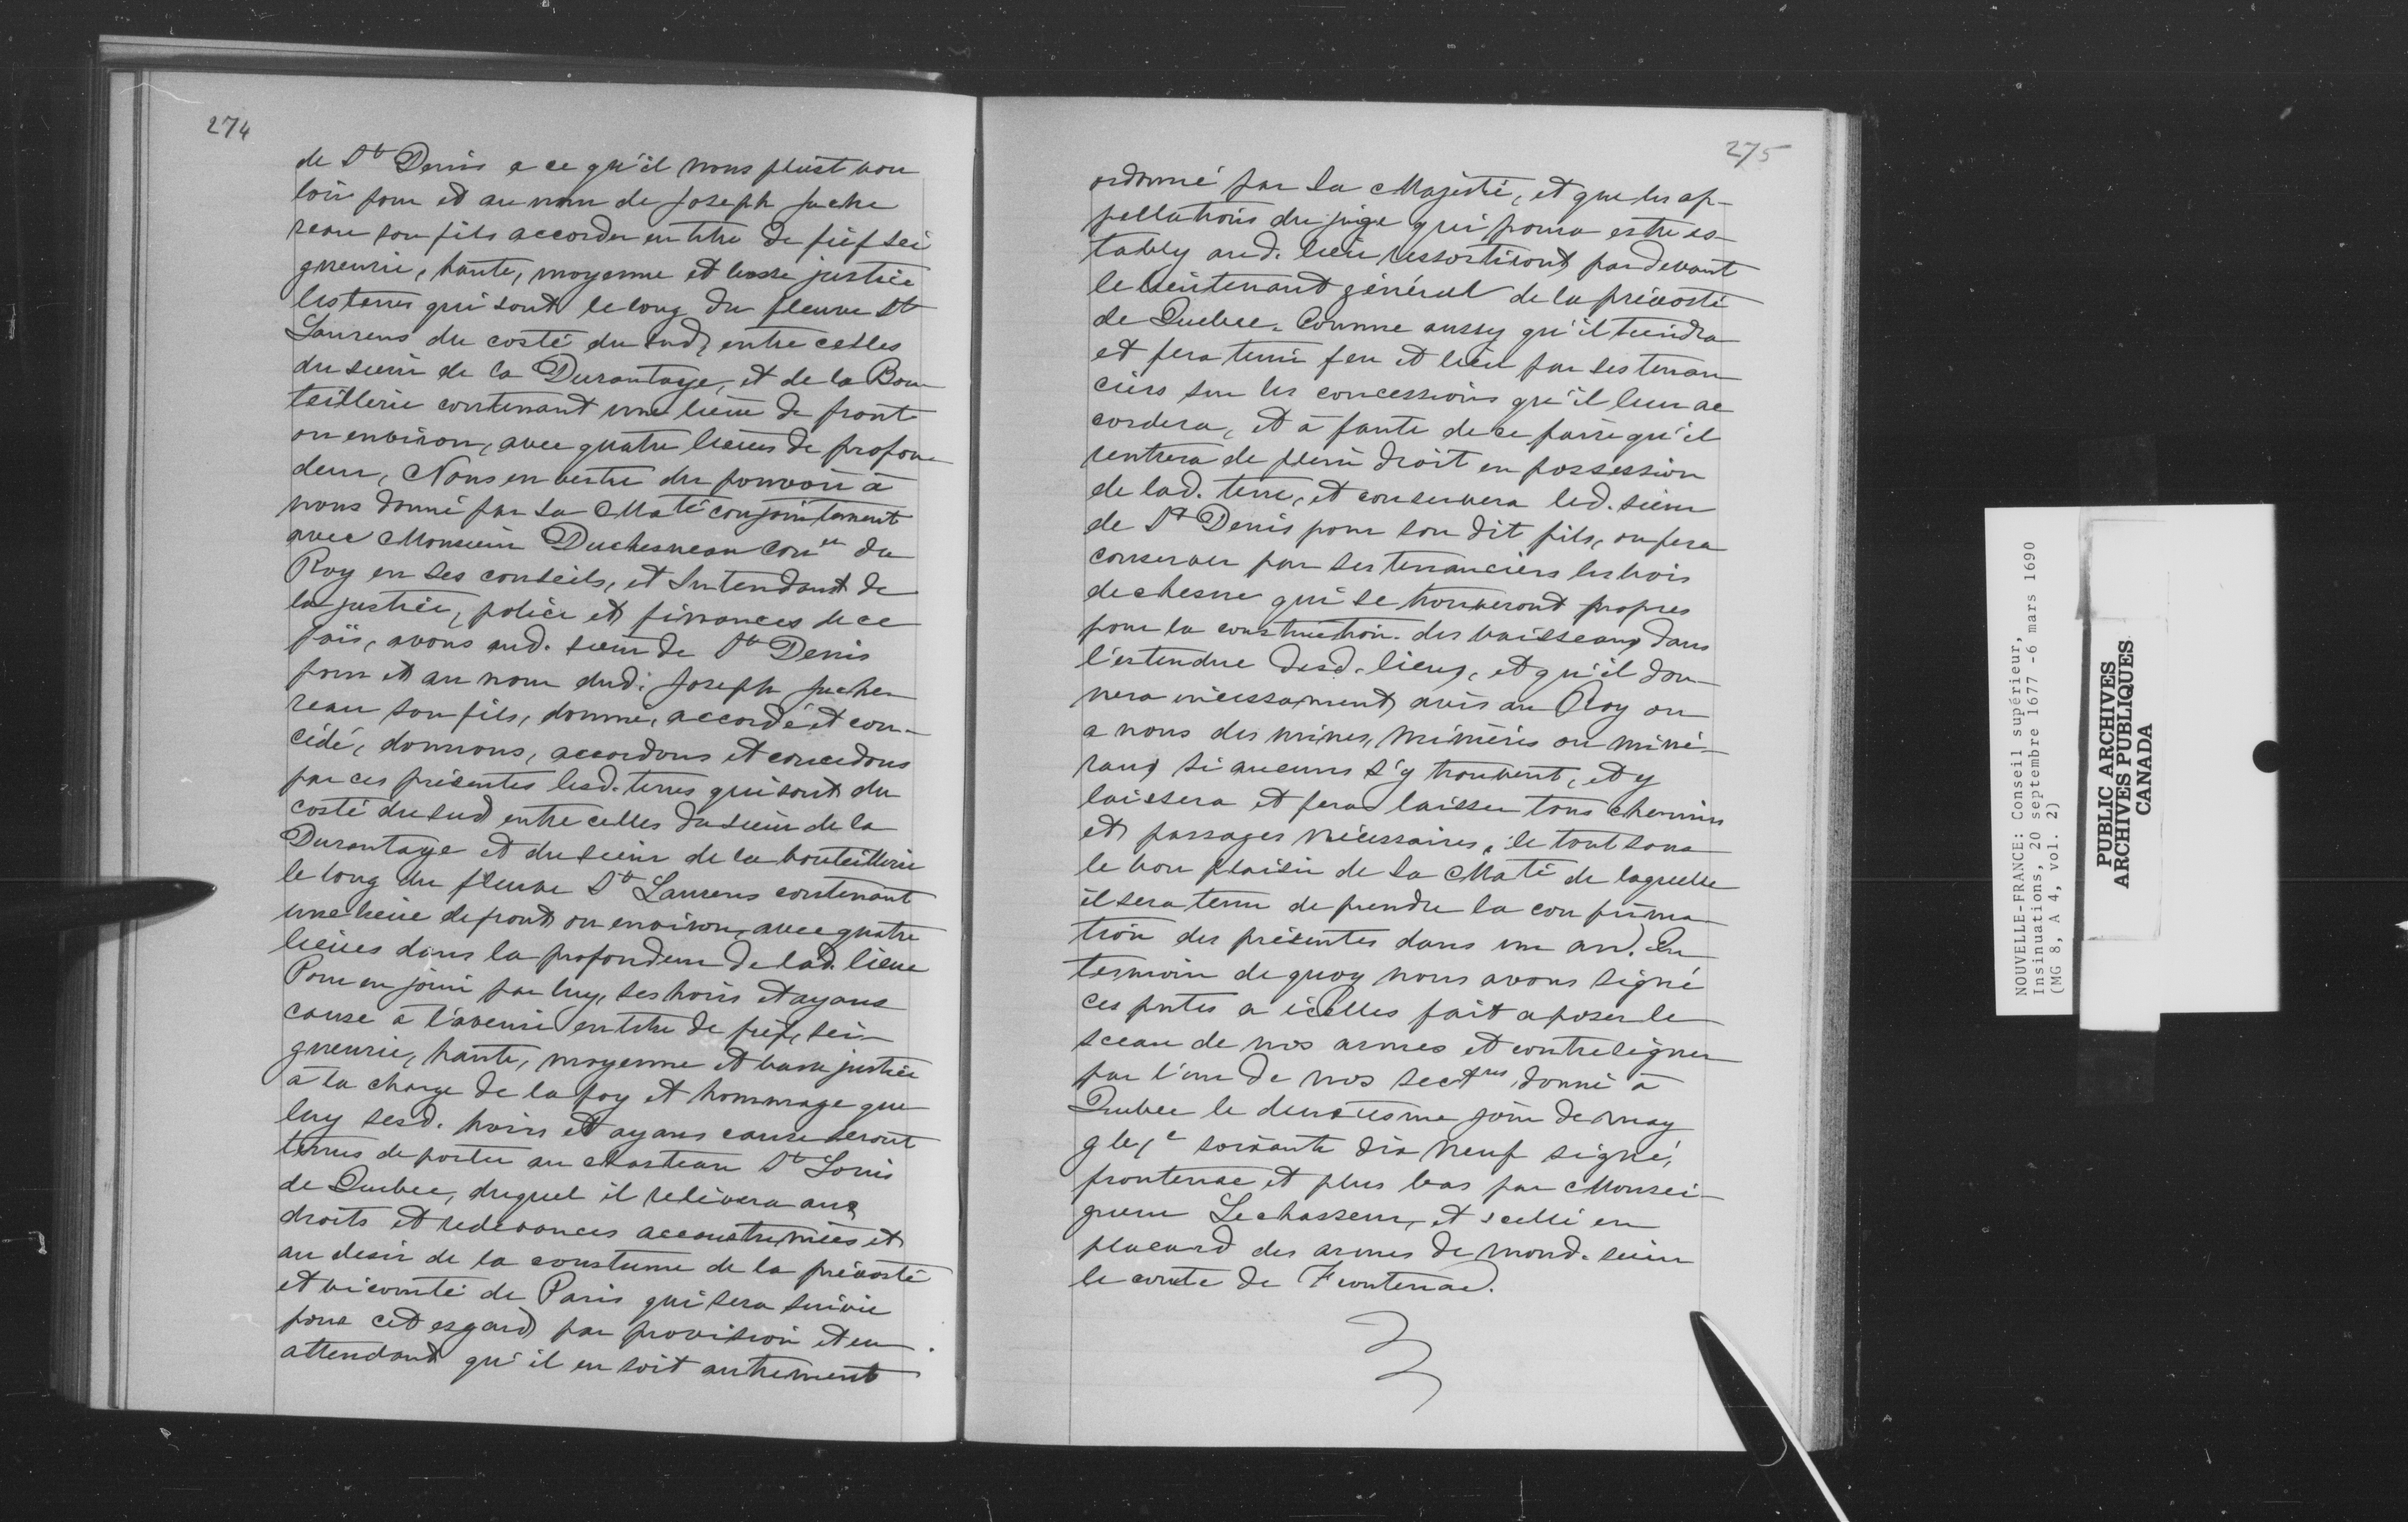 274
de St Denis a ce qu'il nous plust vou
loir pour et au nom de Joseph Juche
reau son fils accorder en titre de fief sei
gneurie, haute, moyenne et basse justice
les terres qui sont le long du fleuve St
Laurens du costé du sud, entre celles
du sieur de la Durantaye, et de la Bou
teillerie contenant une lieue de front
ou environ, avec quatre lieues de profon
deur, Nous en vertu du pouvoir à
nous donné par Sa Maté conjointement
avec Monsieur Duchesneau Conser du
Roy en ses conseils, et Intendant de
la justice, police et finances de ce
païs, avons aud. sieur de St Denis
pour et au nom dud. Joseph Juche
reau son fils, donné, accordé et con-
cédé, donnons, accordons et concedons
par ces présentes lesd. terres qui sont du
costé du sud entre celles du sieur de la
Durantaye et du sieur de la bouteillerie
le long du fleuve St Laurens contenant
une lieue de front ou environ, avec quatre
lieues dans la profondeur de lad. lieue
Pour en jouir par luy, ses hoirs et ayans
cause à l'avenir en titre de fief, sei-
gneurie, haute, moyenne et basse justice
à la charge de la foy et hommage que
luy sesd. hoirs et ayans cause seront
tenus de porter au chasteau St Louis
de Quebec, duquel il relèvera aux
droits et redevances accoustumées et
au desir de la coustume de la prévosté
et vicomté de Paris qui sera suivie
pour cet esgard par provision et en
attendant qu'il en soit autrement
275
ordonné par Sa Majesté, et que les ap-
pellations du juge qui poura estre es-
tably aud. lieu ressortiront pardevant
le lieutenant général de la prévosté
de Quebec. Comme aussy qu'il tiendra
et fera tenir feu et lieu par ses tenan
ciers sur les concessions qu'il leur ac
cordera, et à faute de ce faire qu'il
rentrera de plein droit en possession
de lad. terre, et conservera led. sieur
de St Denis pour son dit fils, ou fera
conserver par ses tenanciers les bois
de chesne qui se trouveront propres
pour la construction des vaisseaux dans
l'estendue desd. lieux, et qu'il don-
nera incessament avis au Roy ou
a nous des mines, minières ou miné-
raux si aucuns s'y trouvent, et y
laissera et fera laisser tous chemins
et passages nécessaires, le tout sous
le bon plaisir de Sa Maté de laquelle
il sera tenu de prendre la confirma-
tion des présentes dans un an. En
tesmoin de quoy nous avons signé
ces pntes a icelles fait aposer le
sceau de nos armes et contresigner
par l'un de nos sectres donné à
Quebec le deuxiesme jour de may
soixante dix neuf signé,
frontenac et plus bas par Monsei-
gneur Lechasseur, et scellé en
placard des armes de mond. sieur
le comte de Frontenac.
NOUVELLE-FRANCE: Conseil supérieur,
Insinuations, 20 septembre 1677 -6 mars 1690
(MG 8, A 4, vol. 2)
PUBLIC ARCHIVES
ARCHIVES PUBLIQUES
CANADA